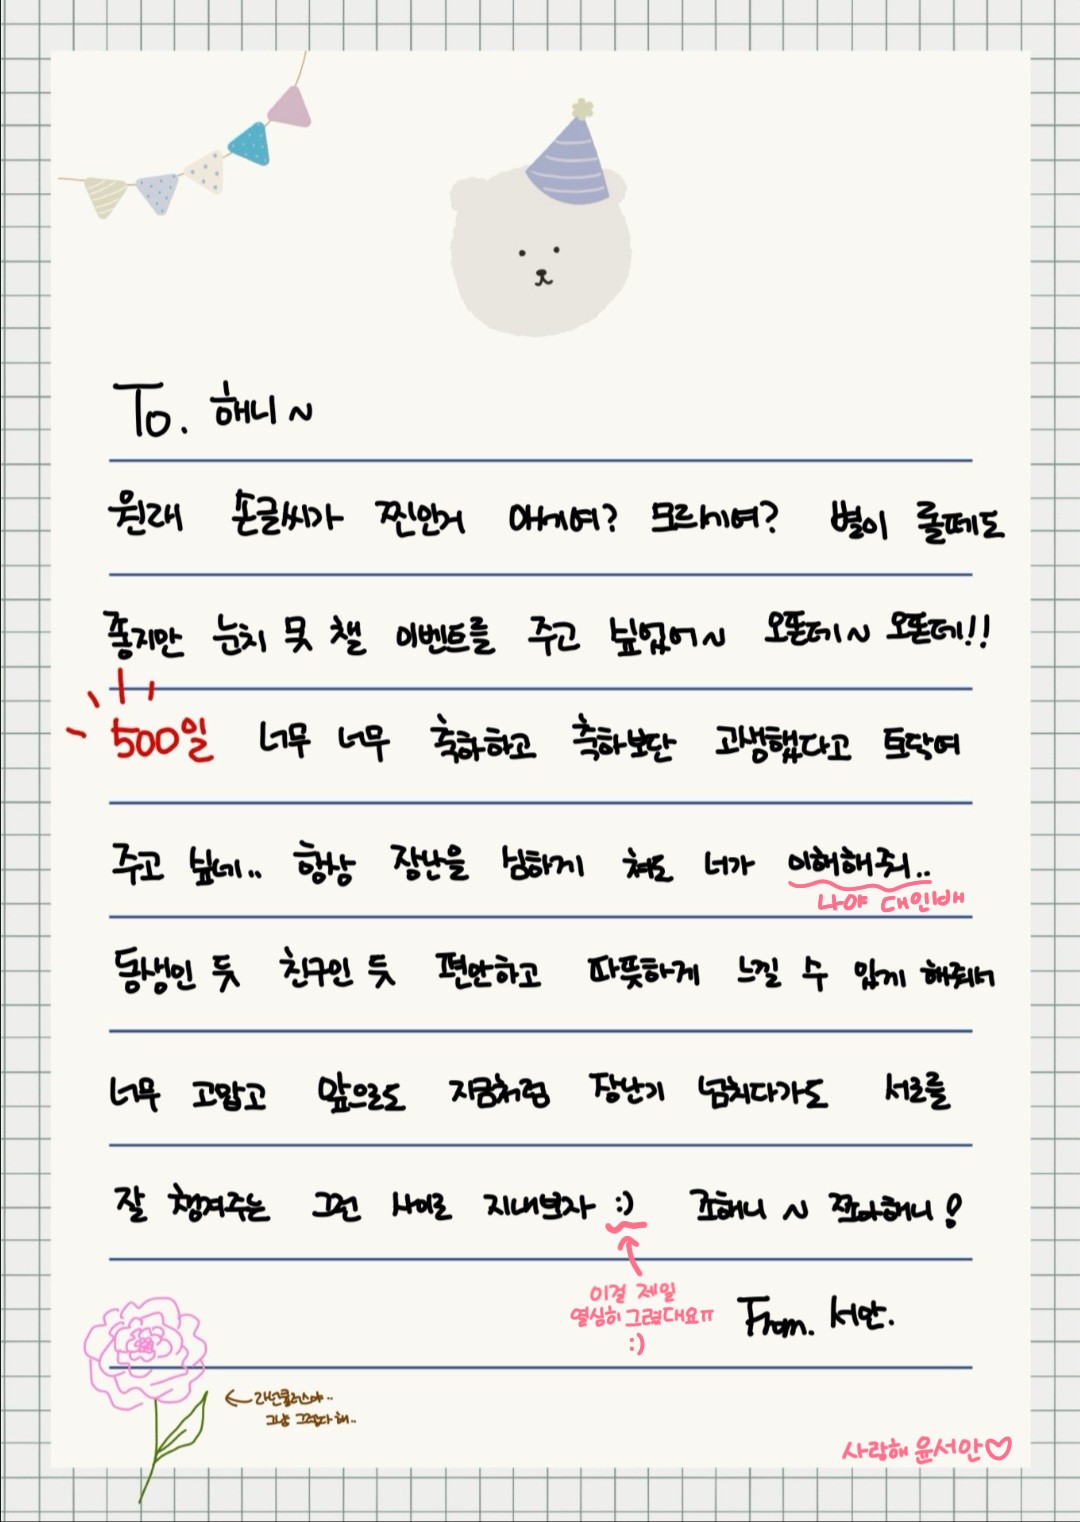 To. 해니~
원래 손글씨가 찐인거 아시여? 모르시여? 별이 룰떼도
좋지만 눈치 못 챌 이벤트를 주고 싶었어~ 오똔데~ 오똔데!!
500일 너무 너무 축하하고 축하보단 고생했다고 토닥여
주고 싶네.. 항상 장난을 심하게 쳐도 너가 이해해줘..
나야 대인배
동생인 듯 친구인 듯 편안하고 따뜻하게 느낄 수 있게 해줘서
너무 고맙고 앞으로도 지금처럼 장난기 넘치다가도 서로를
잘 챙겨주는 그런 사이로 지내보자 :) 조해니~ 쪼아해니!
이걸 제일
열심히 그렸대요ㅠ
:)
From. 서안.
←라넌큘러스야..
그냥 그렇다 해..
사랑해 윤서안♡